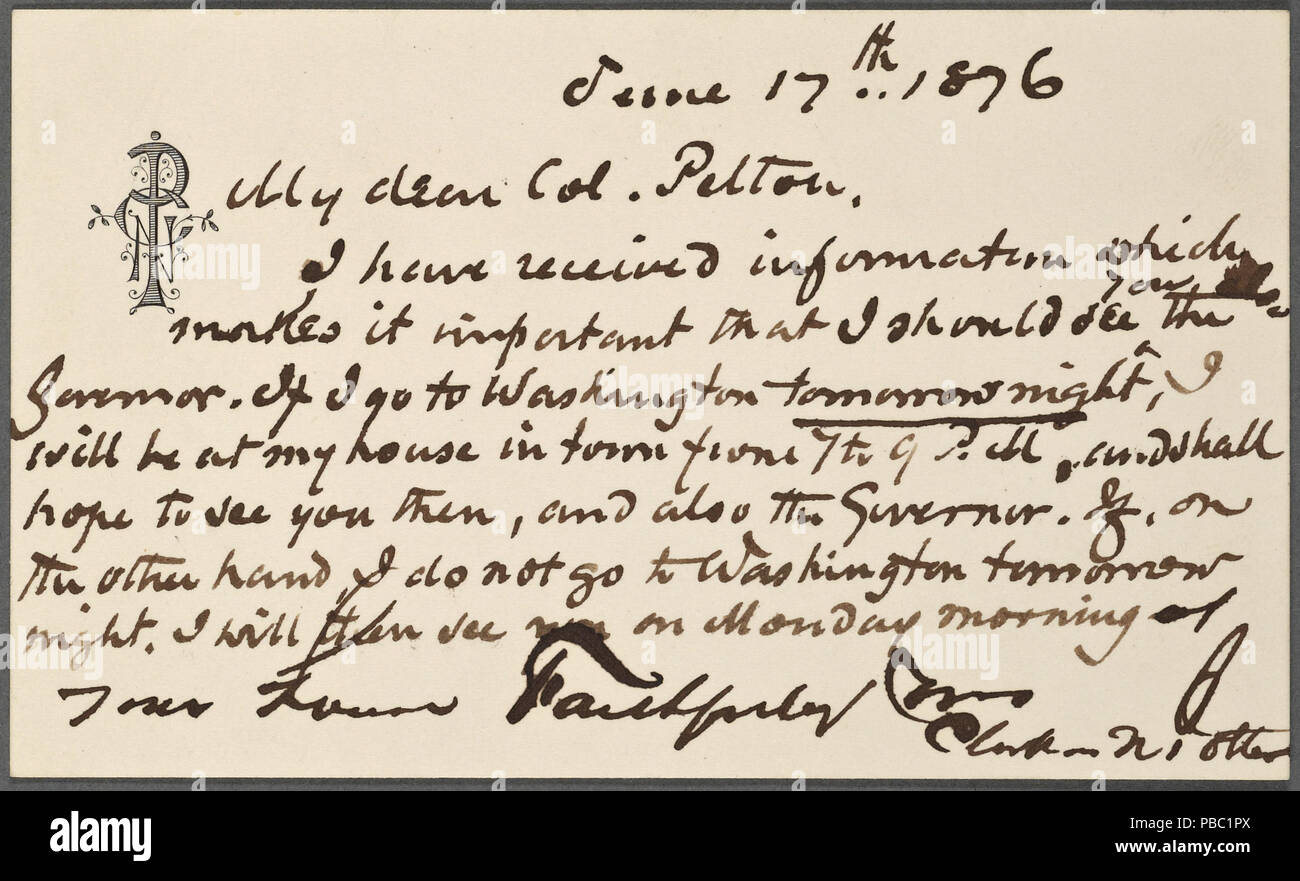 June 17th. 1876
My dear Col. Pelton,
I have received information which
makes it important that I should see the
you also
Governor. If I go to Washington tomorrow night, I
will be at my house in town from 7 to 9 P.M., and shall
hope to see you then, and also the Governor. If, on
the other hand, I do not go to Washington tomorrow
night, I will then see you on Monday morning at
your house Faithfully yrs
Clarkson N Potter
alamy
Image ID: PBC1PX
www.alamy.com